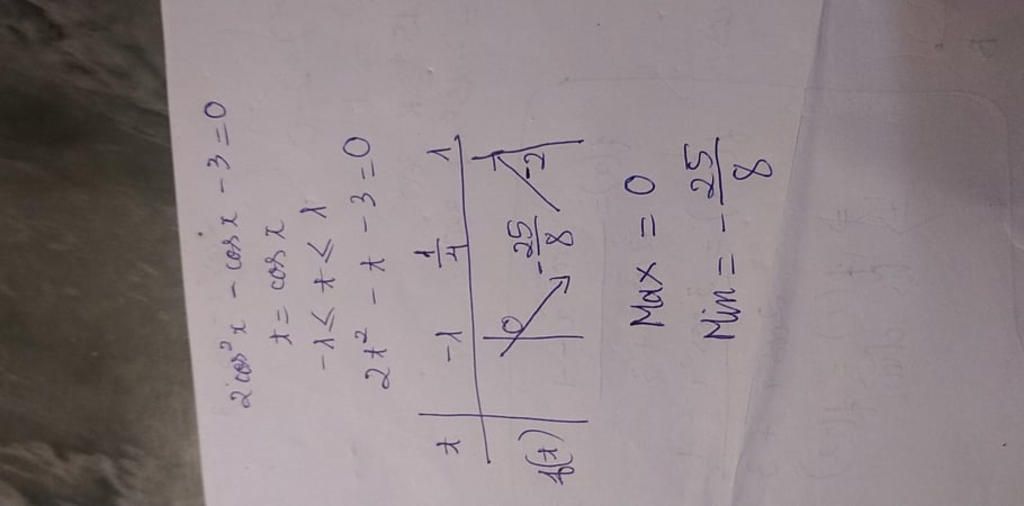 2cos²x - cosx - 3 = 0
t = cosx
-1 ≤ t ≤ 1
2t² - t - 3 = 0
t -1 1/4 1
f(t) 0 -25/8 -2
Max = 0
Min = -25/8